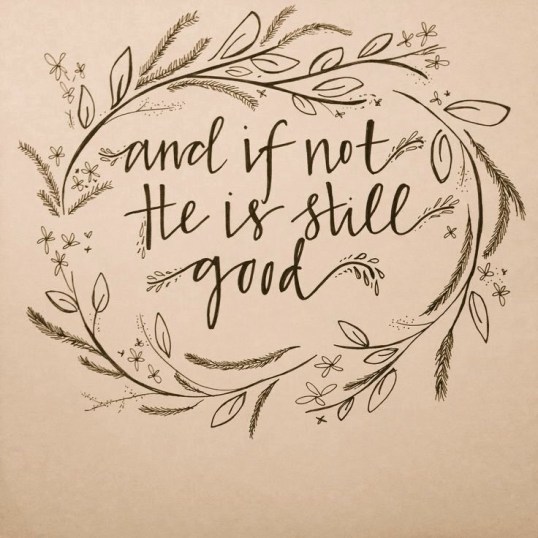 and if not
He is still
good